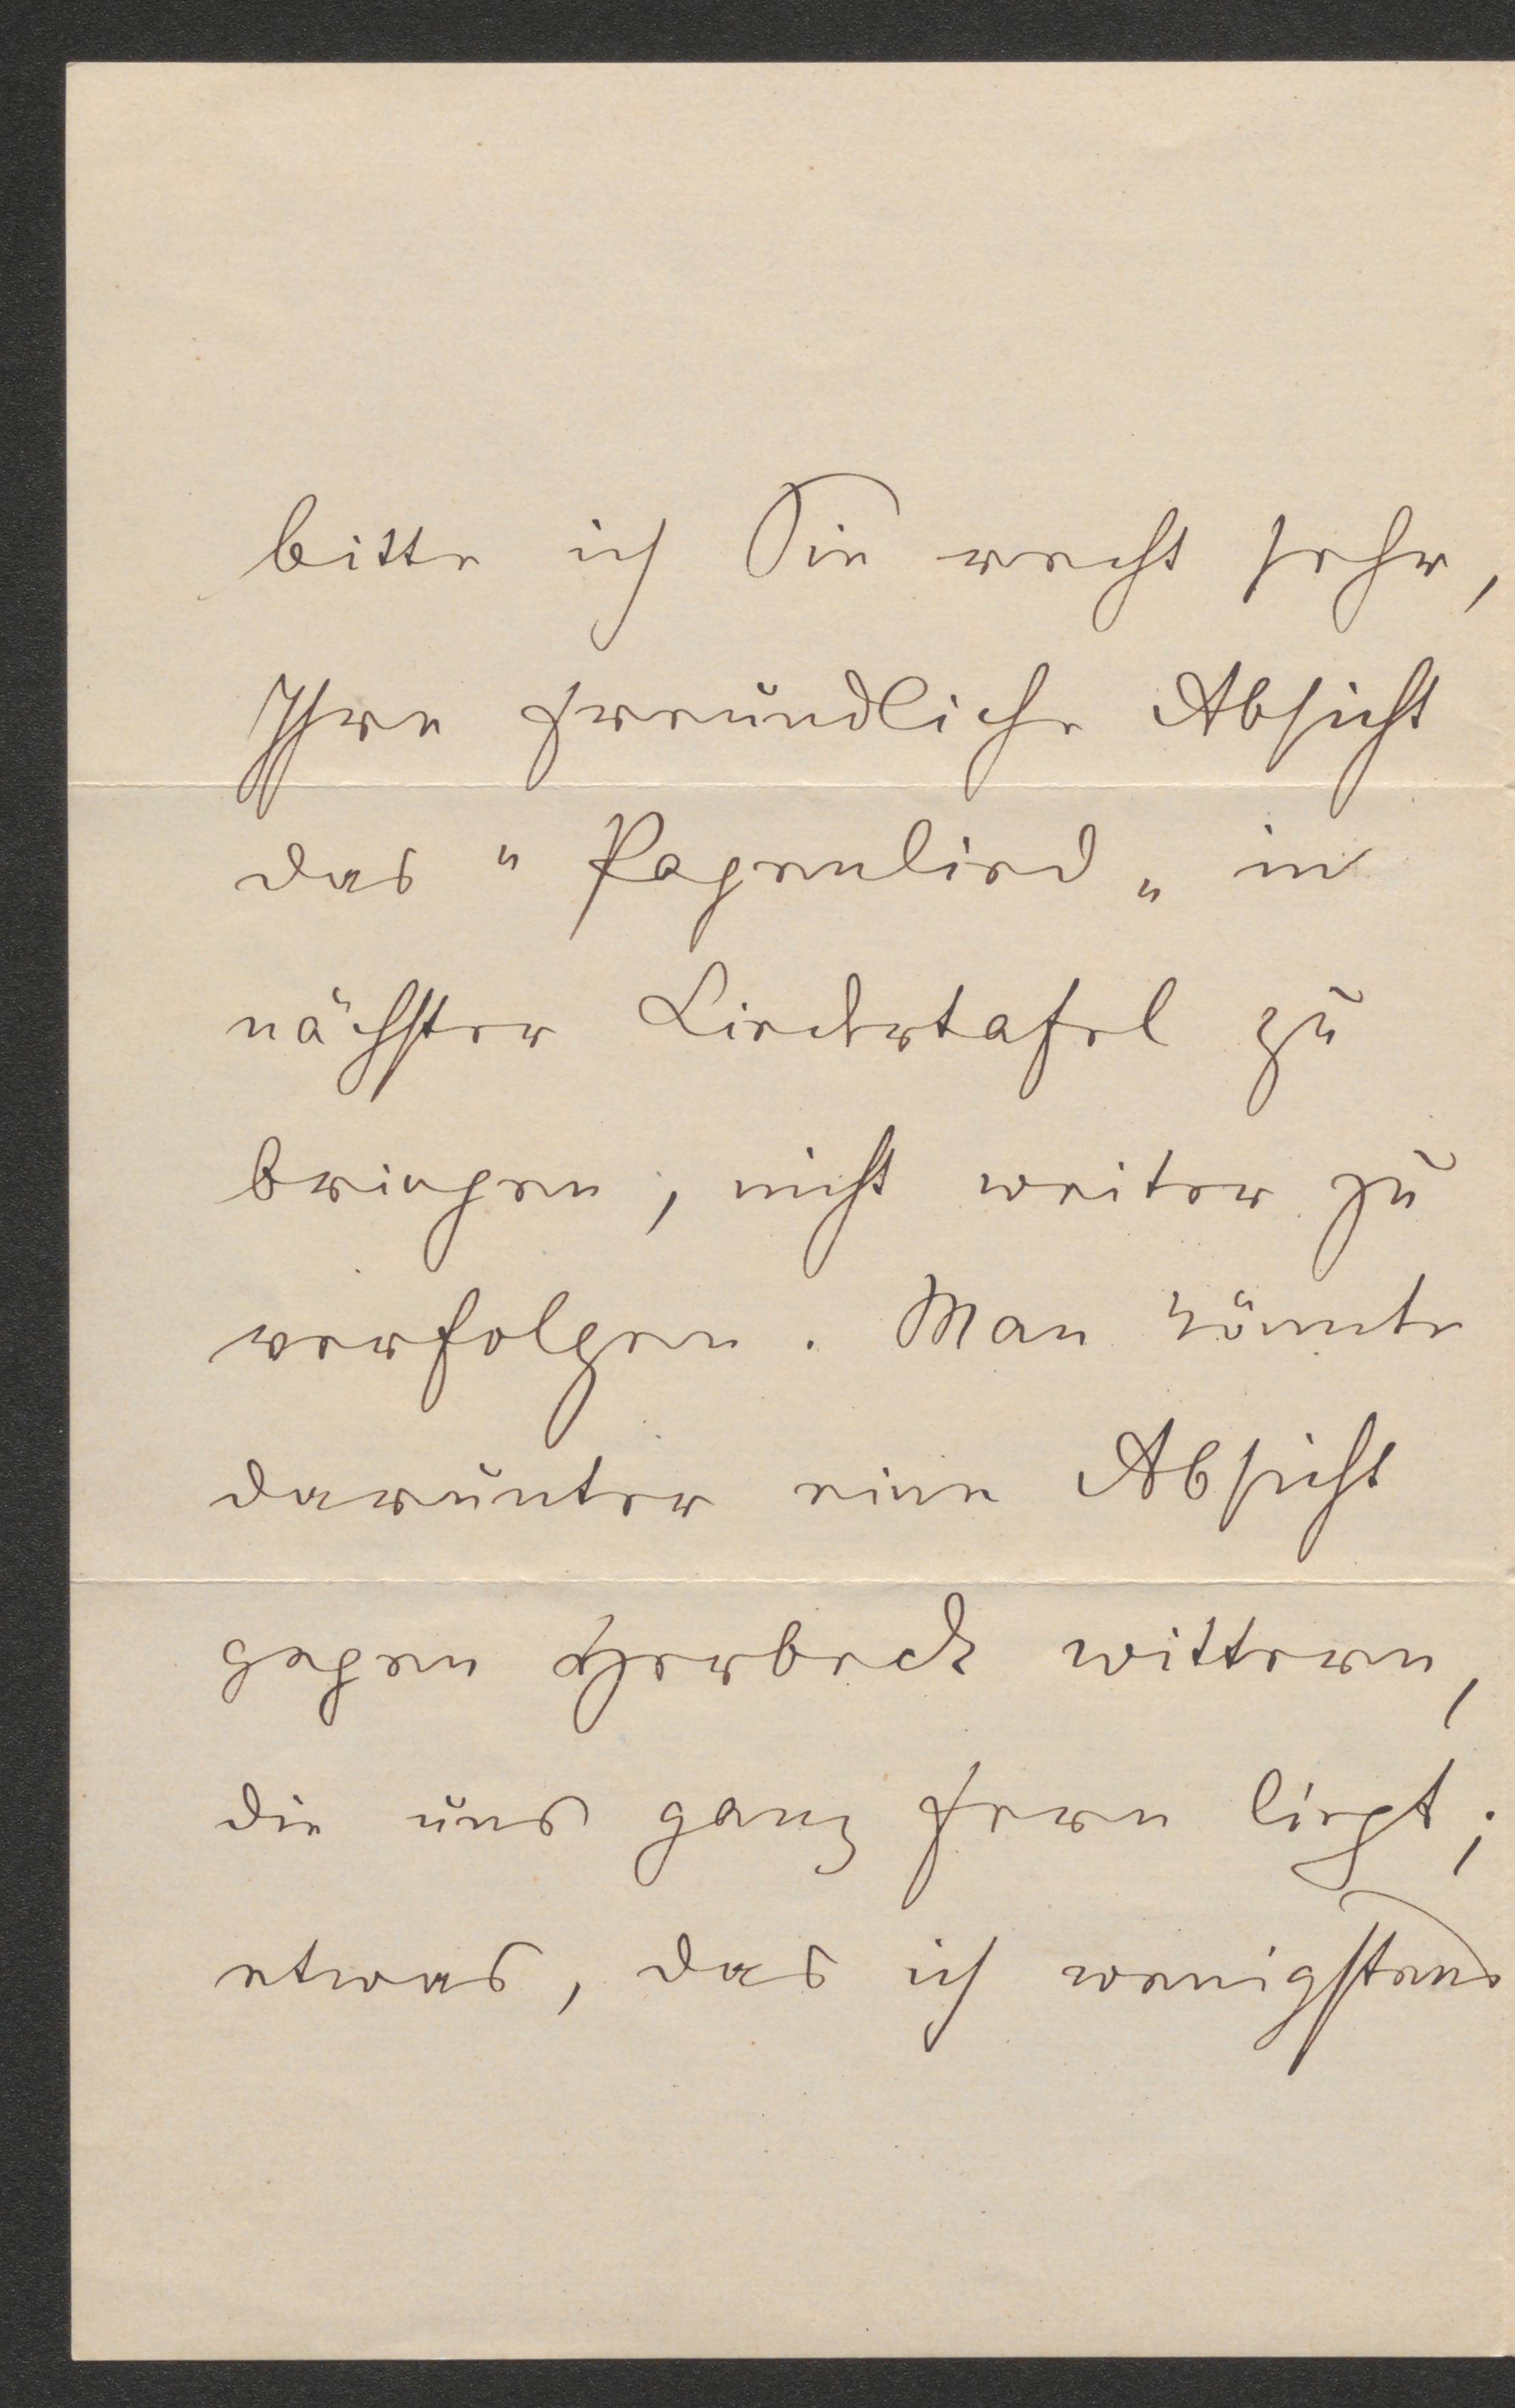 bitte ich Sie recht sehr,
Ihre freundliche Absicht
das "Pagenlied" in
nächster Liedertafel zu
bringen, nicht weiter zu
verfolgen. Man könnte
darunter eine Absicht
gegen Herbeck wittern,
die uns ganz fern liegt;
etwas, das ich wenigstens